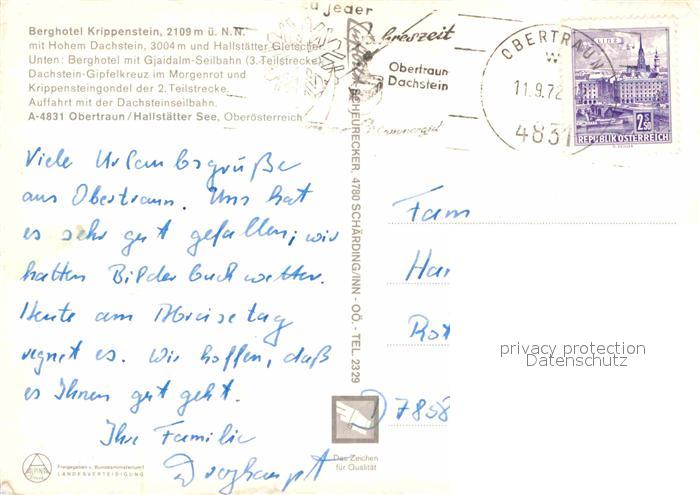 Berghotel Krippenstein, 2109 m ü. N.N.
mit Hohem Dachstein, 3004 m und Hallstätter Gletscher
Unten: Berghotel mit Gjaidalm-Seilbahn (3. Teilstrecke)
Dachstein-Gipfelkreuz im Morgenrot und
Krippensteingondel der 2. Teilstrecke.
Auffahrt mit der Dachsteinseilbahn.
A-4831 Obertraun / Hallstätter See, Oberösterreich
zu jeder
Jahreszeit
Obertraun
Dachstein
OBERTRAUN
11.9.72
4831
LINZ
2.50
REPUBLIK ÖSTERREICH
Viele Urlaubsgrüße
aus Obertraun. Uns hat
es sehr gut gefallen; wir
hatten Bilderbuchwetter.
Heute am Abreisetag
regnet es. Wir hoffen, daß
es Ihnen gut geht.
Ihre Familie
SCHEURECKER, 4780 SCHÄRDING/INN - OÖ. - TEL. 2329
Fam
Ha
Rot
D 7858
privacy protection
Datenschutz
Das Zeichen
für Qualität
ALPINE
Freigegeben v. Bundesministerium f.
LANDESVERTEIDIGUNG